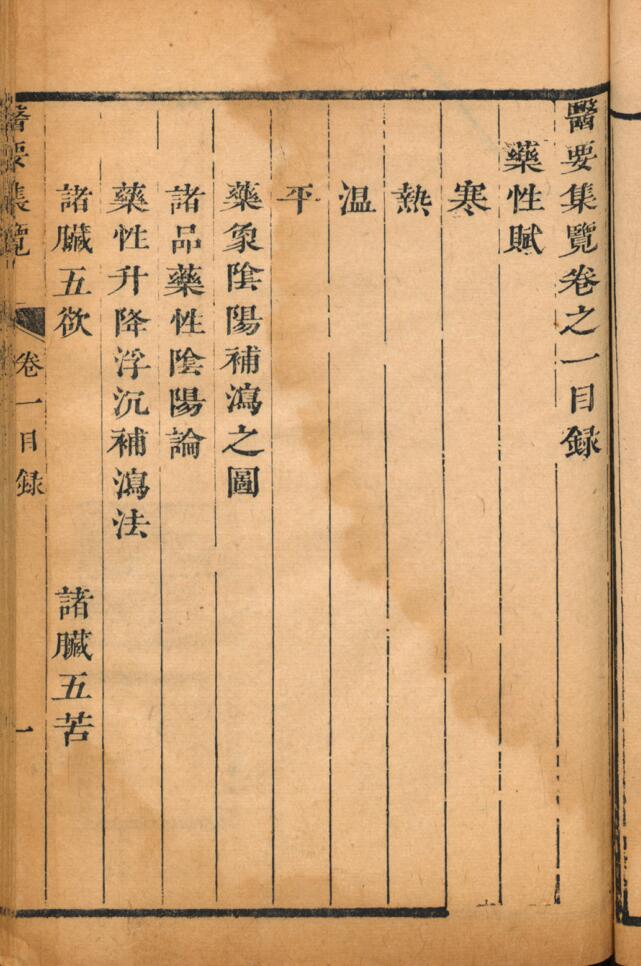 醫要集覽卷之一目録
藥性賦
寒
熱
温
平
藥象陰陽補瀉之圖
諸品藥性陰陽論
藥性升降浮沉補瀉法
諸臟五欲　諸臟五苦
醫要集覽　卷一目録　一